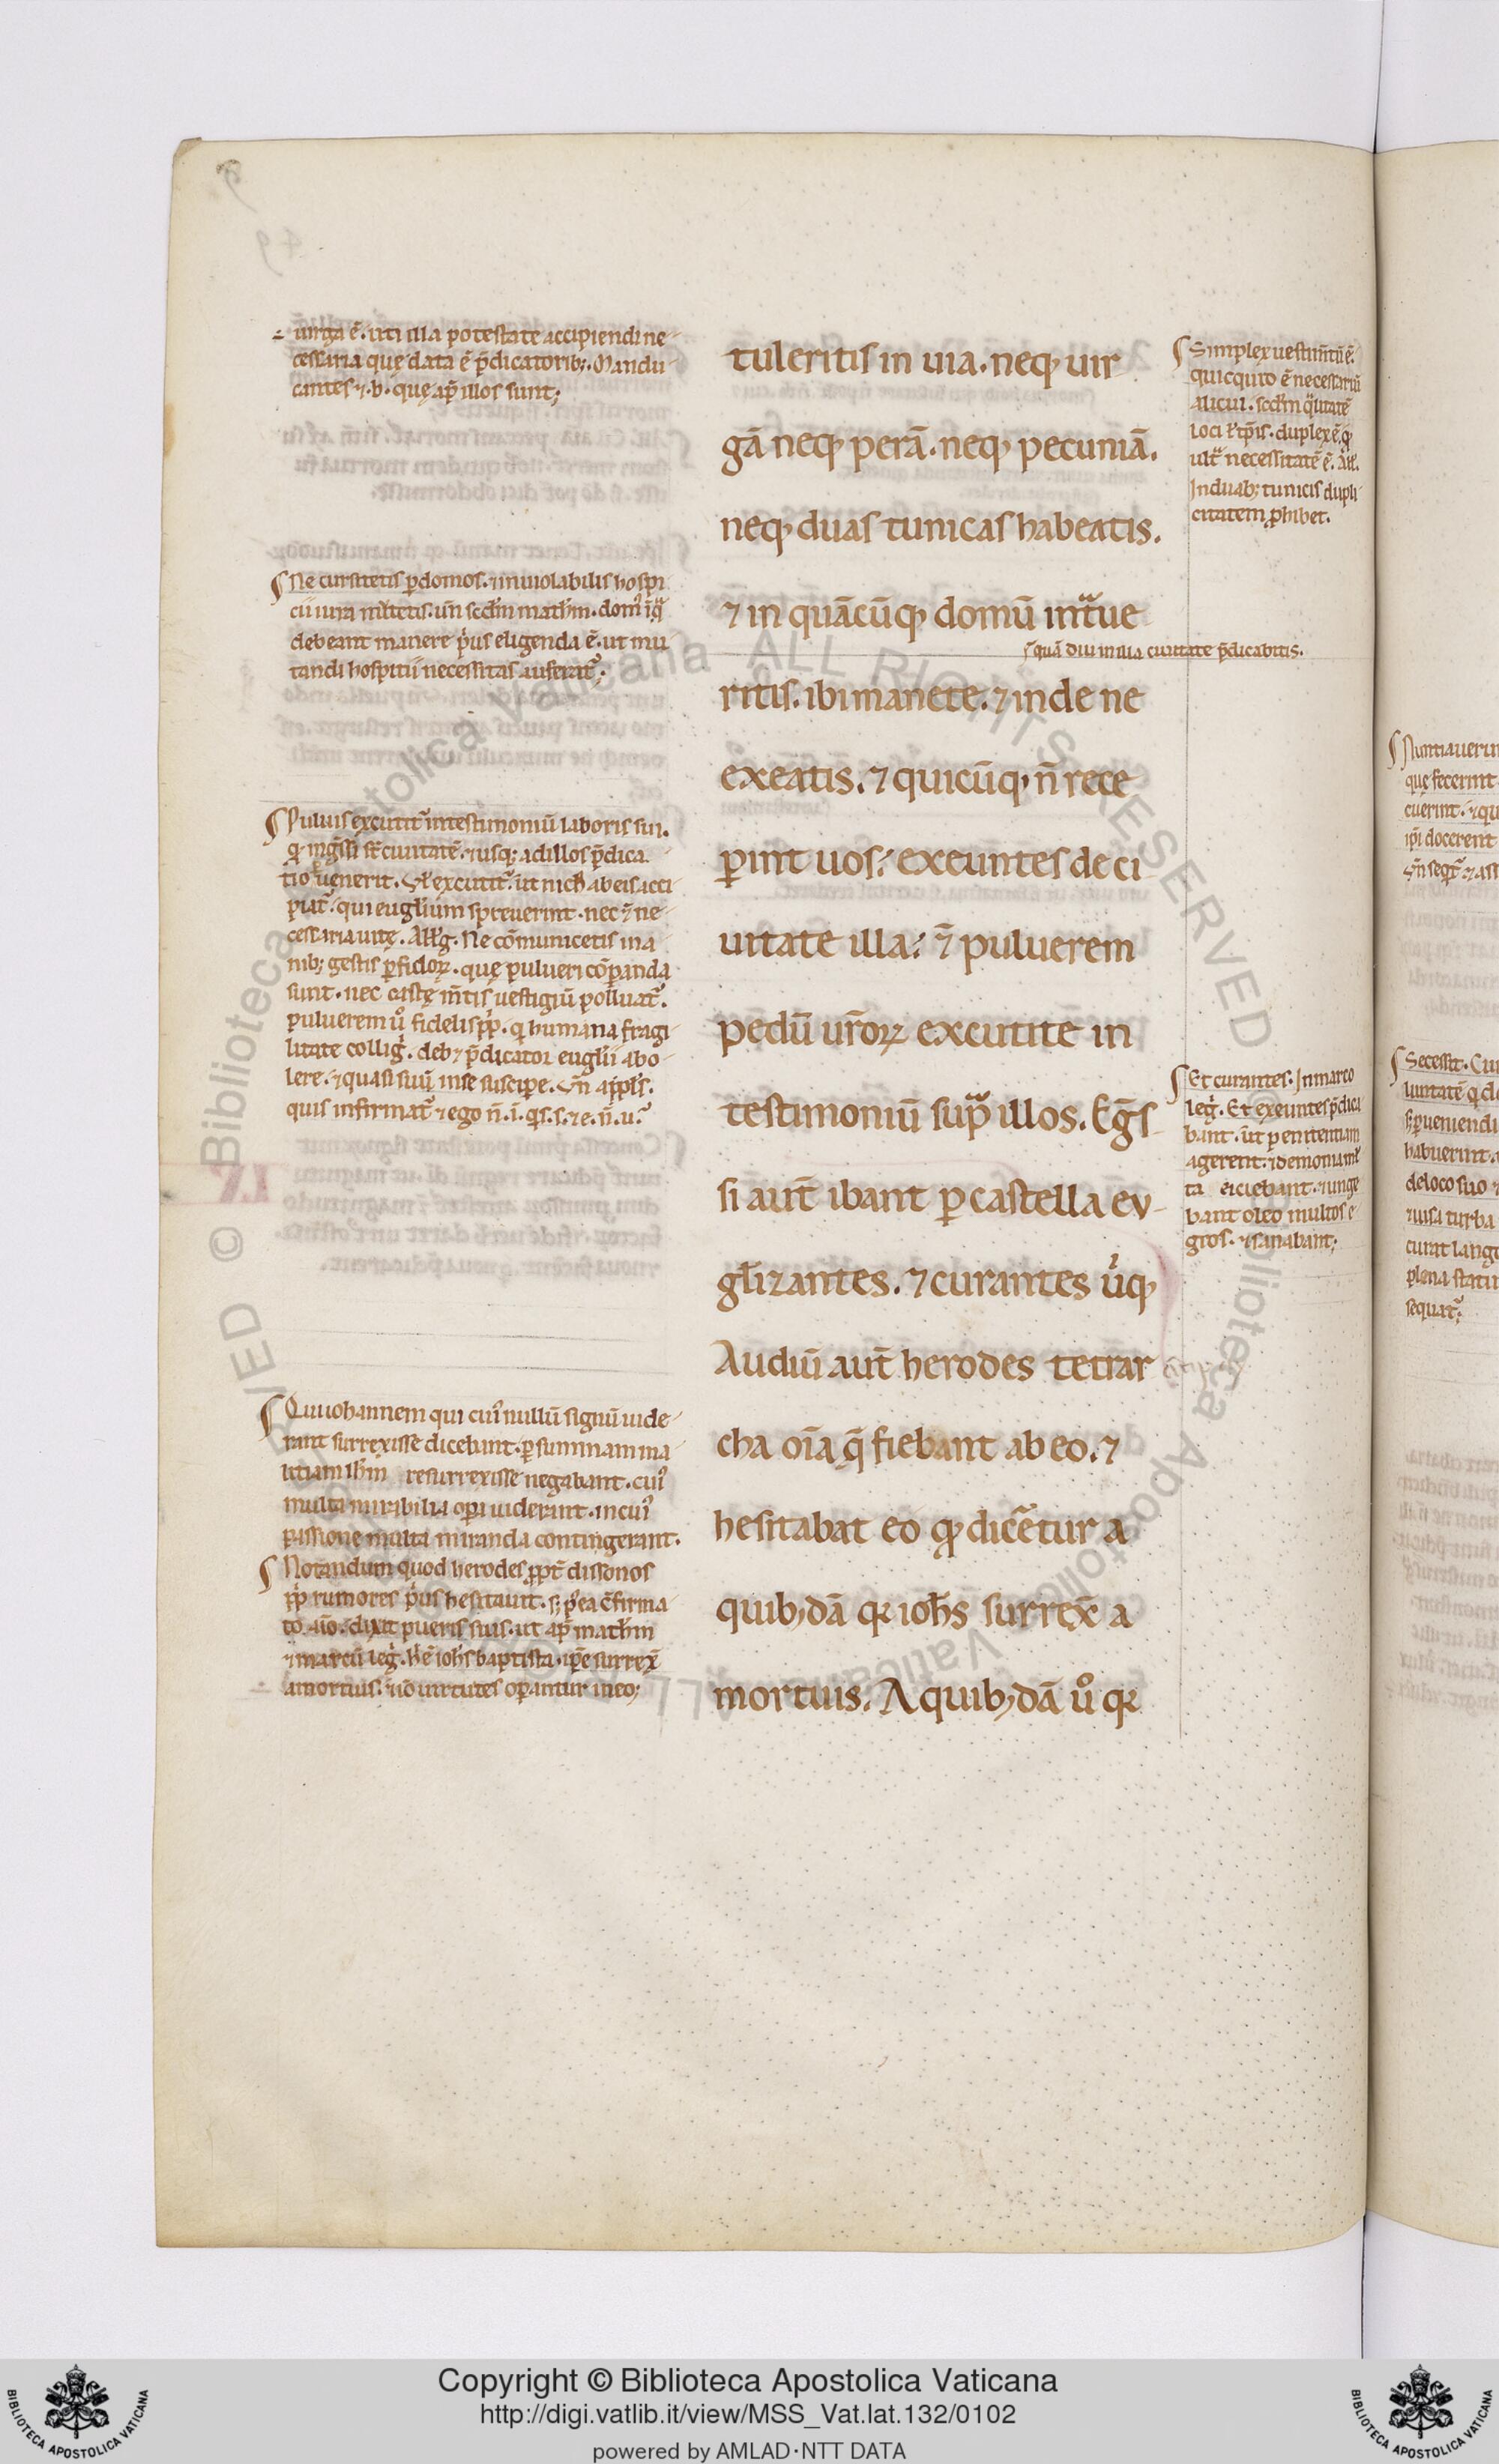 uirga ē. uti illa potestate accipiendi ne-
cessaria quę data ē p̄dicatorib;. Mandu-
cantes ⁊. b. quę ap̄ illos sunt;
Ne cursitetis p domos. ⁊ inuiolabilis hospi
cii iura mutetis. un̄ scd̄m math̄m. dom᷒ ī q̄
debeant manere p̄us eligenda ē. ut mu-
tandi hospitii necessitas auferat᷑;
Puluis excutit᷑ in testimoniū laboris sui.
q̄ ingressi st̄ ciuitatē. ⁊ usq; ad illos p̄dica
tio uenerit. Vł excutit᷑. ut nich̄ ab eis acci
piat᷑. qui eugłium spreuerint. nec ⁊ ne-
cessaria uitę. Ałł g. Ne cōmunicetis ina
nib; gestis pfidoꝝ. quę pulueri cōpanda
sunt. nec castę m̄tis uestigiū polluat᷑.
puluerem ů fidelis p̄p. q̄ humana fragi
litate colliḡ. deb; p̄dicator eugłii abo-
lere. ⁊ quasi suū in se suscipe. Vn̄ apłs.
quis infirmat᷑ ⁊ ego n̄. ī. q̄s. s. ⁊ e. n̄. u.᷑
Qui iohannem qui cui᷒ nullū signū uide-
rant surrexisse dicebant. p summam ma-
litiam ih̄m resurrexisse negabant. cui᷒
multa mirabilia opa uiderant. in cui᷒
passione multa miranda contingerant.
Notandum quod herodes ppt̄ dissonos
pp̄ rumores p̄us hesitauit. s; p᷒ea c̄firma-
to aīo. dixit pueris suis. ut ap̄ math̄m
⁊ marcū leḡ. Hic ē ioh̄s baptista. ip̄e surrex̄
a mortuis. ⁊ iō uirtutes opantur in eo;
tuleritis in uia. neq; uir
gā neq; perā. neq; pecuniā.
neq; duas tunicas habeatis.
⁊ in quācūq; domū int̄ue
quā diu in illa ciuitate p̄dicabitis.
ritis. ibi manete. ⁊ inde ne
exeatis. ⁊ quicūq; n̄ rece
pint uos. exeuntes de ci-
uitate illa. ⁊̄ puluerem
pedū ur̄oꝝ excutite in
testimoniū sup̄ illos. Eḡs-
si aut̄ ibant p castella eu-
głizantes. ⁊ curantes ub̄iq;
Audiū aut̄ herodes tetrar
cha oīa q̄ fiebant ab eo. ⁊
hesitabat eo qđ dic̄etur a
quib;dā qꝛ ioh̄s surrex̄ a
mortuis. A quib;dā ů qꝛ
Simplex uestim̄tū ē.
quicquid ē necessariū
alicui. scd̄m q̄litatē
loci ł tp̄is. duplex ē. q̄
ult̄ necessitatē ē. Ałł.
In duab; tunicis dupli
citatem phibet.
Et curantes: In marco
leḡ. Et exeuntes p̄dica
bant. ut penitentiam
agerent. ⁊ demonia ml̄
ta eiciebant. ⁊ unge
bant oleo multos e-
gros. ⁊ sanabant;
Copyright © Biblioteca Apostolica Vaticana
http://digi.vatlib.it/view/MSS_Vat.lat.132/0102
powered by AMLAD·NTT DATA
BIBLIOTECA APOSTOLICA VATICANA
BIBLIOTECA APOSTOLICA VATICANA